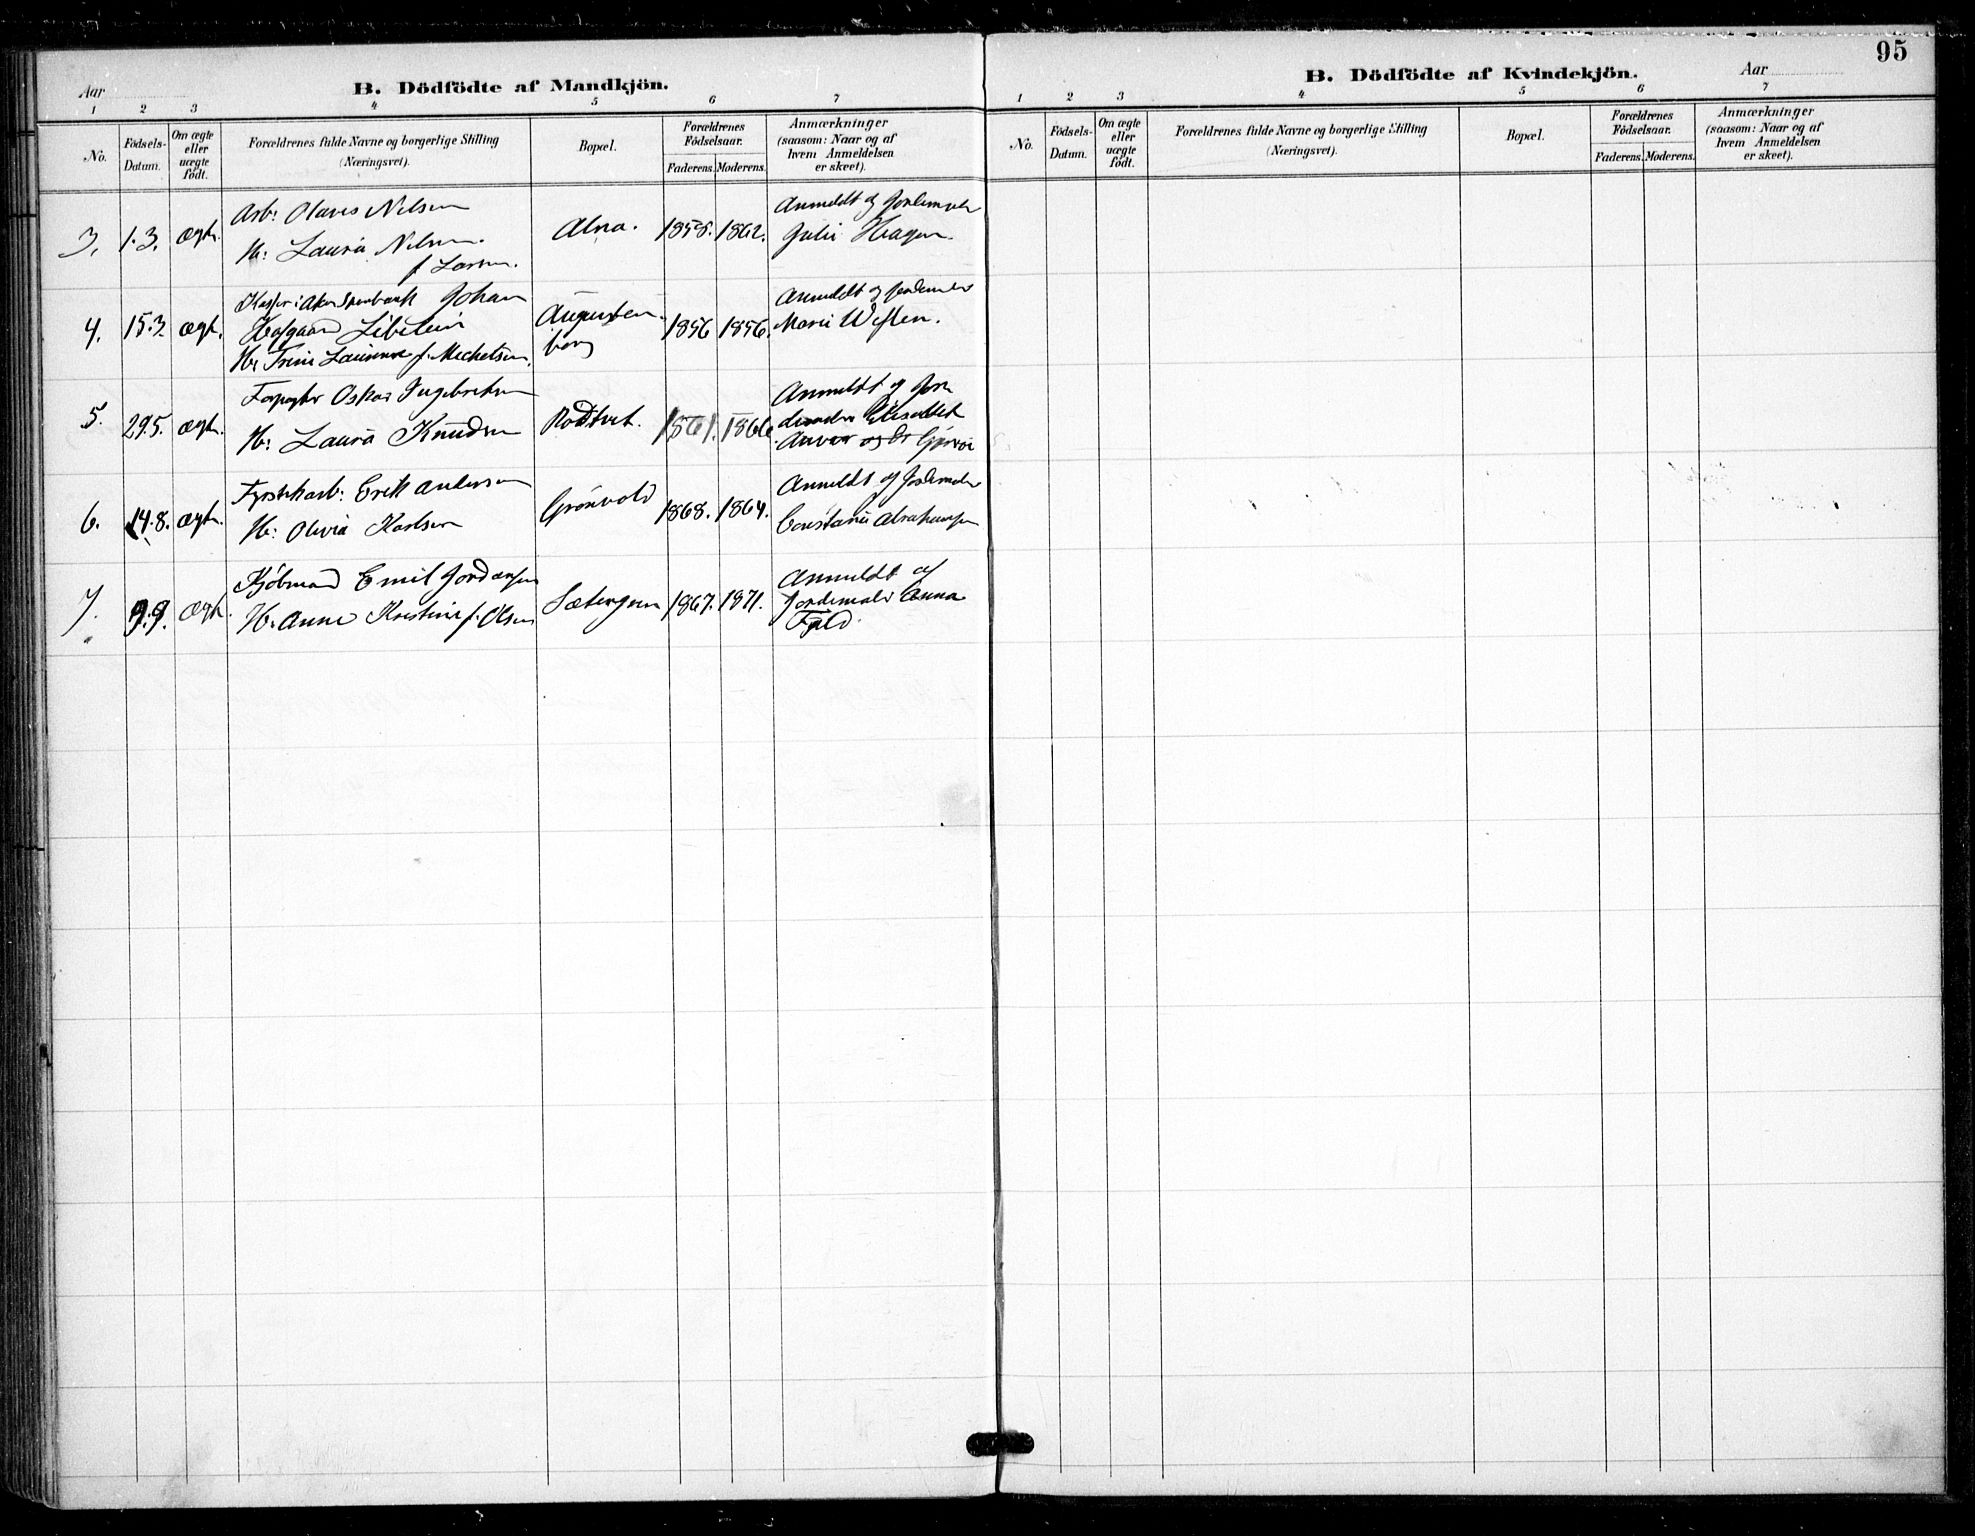 95
Aar
B. Dödfödte af Mandkjön.
1 2 3 4 5 6 7
No.
Födsels-Datum.
Om ægte eller uægte födt.
Forældrenes fulde Navne og borgerlige Stilling (Næringsvei).
Bopæl.
Forældrenes Födselsaar.
Faderens. Moderens.
Anmærkninger (saasom: Naar og af hvem Anmeldelsen er skeet).
3. 1.3. ægte. Arb: Olaves Nilsen
H: Laura Nilsen.
f. Larsen.
Alna. 1858. 1862.
Anmeldt af Jordemoder
Julie Hagen.
4. 15.3. ægt. Johan
Hofgaard
H:
Augusten
borg
1856 1856.
Anmeldt af Jordemoder
Marie
5. 29.5. ægt. Forpagter Oskar Ingebretsen
H: Laura Knudsen
Rödtvet. 1861. 1866
Anmeldt af Jor
demoder
6. 14.8. ægt. Fyrstikarb: Erik Andersen
H: Olivia Karlsen
Grönvold 1868. 1864.
Anmeldt af Jordemoder
Constance Abrahamsen
7. 9.9. ægt. Kjöbmand Emil Jordansen
H: Anne Kristine f. Olsen
Sæterengen 1867. 1871.
Anmeldt af
Jordemoder Anna
B. Dödfödte af Kvindekjön.
Aar
1 2 3 4 5 6 7
No.
Födsels-Datum.
Om ægte eller uægte födt.
Forældrenes fulde Navne og borgerlige Stilling (Næringsvei).
Bopæl.
Forældrenes Födselsaar.
Faderens. Moderens.
Anmærkninger (saasom: Naar og af hvem Anmeldelsen er skeet).